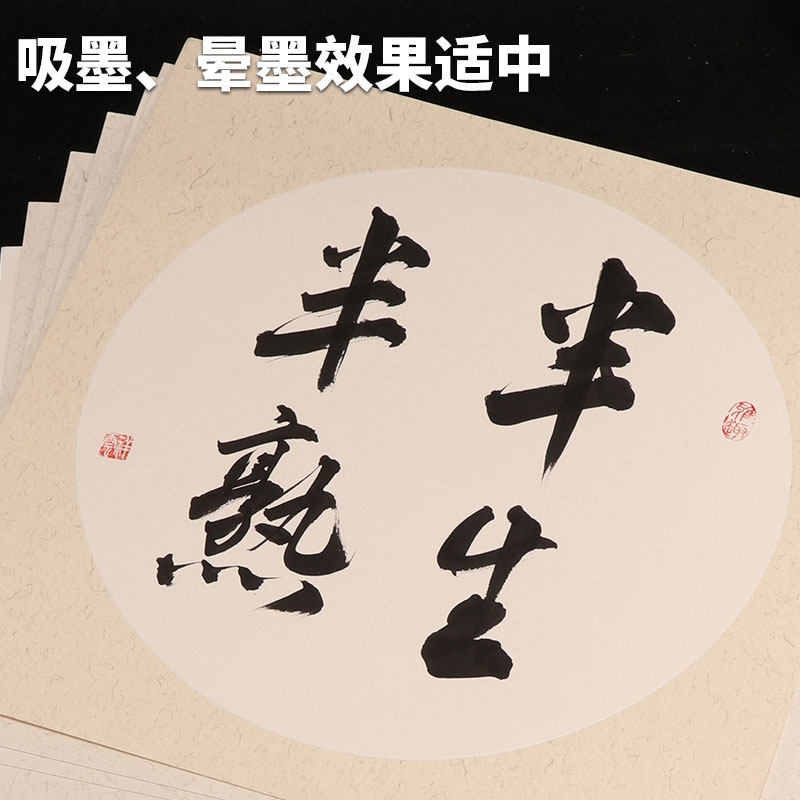 吸墨、晕墨效果适中
半生
半熟